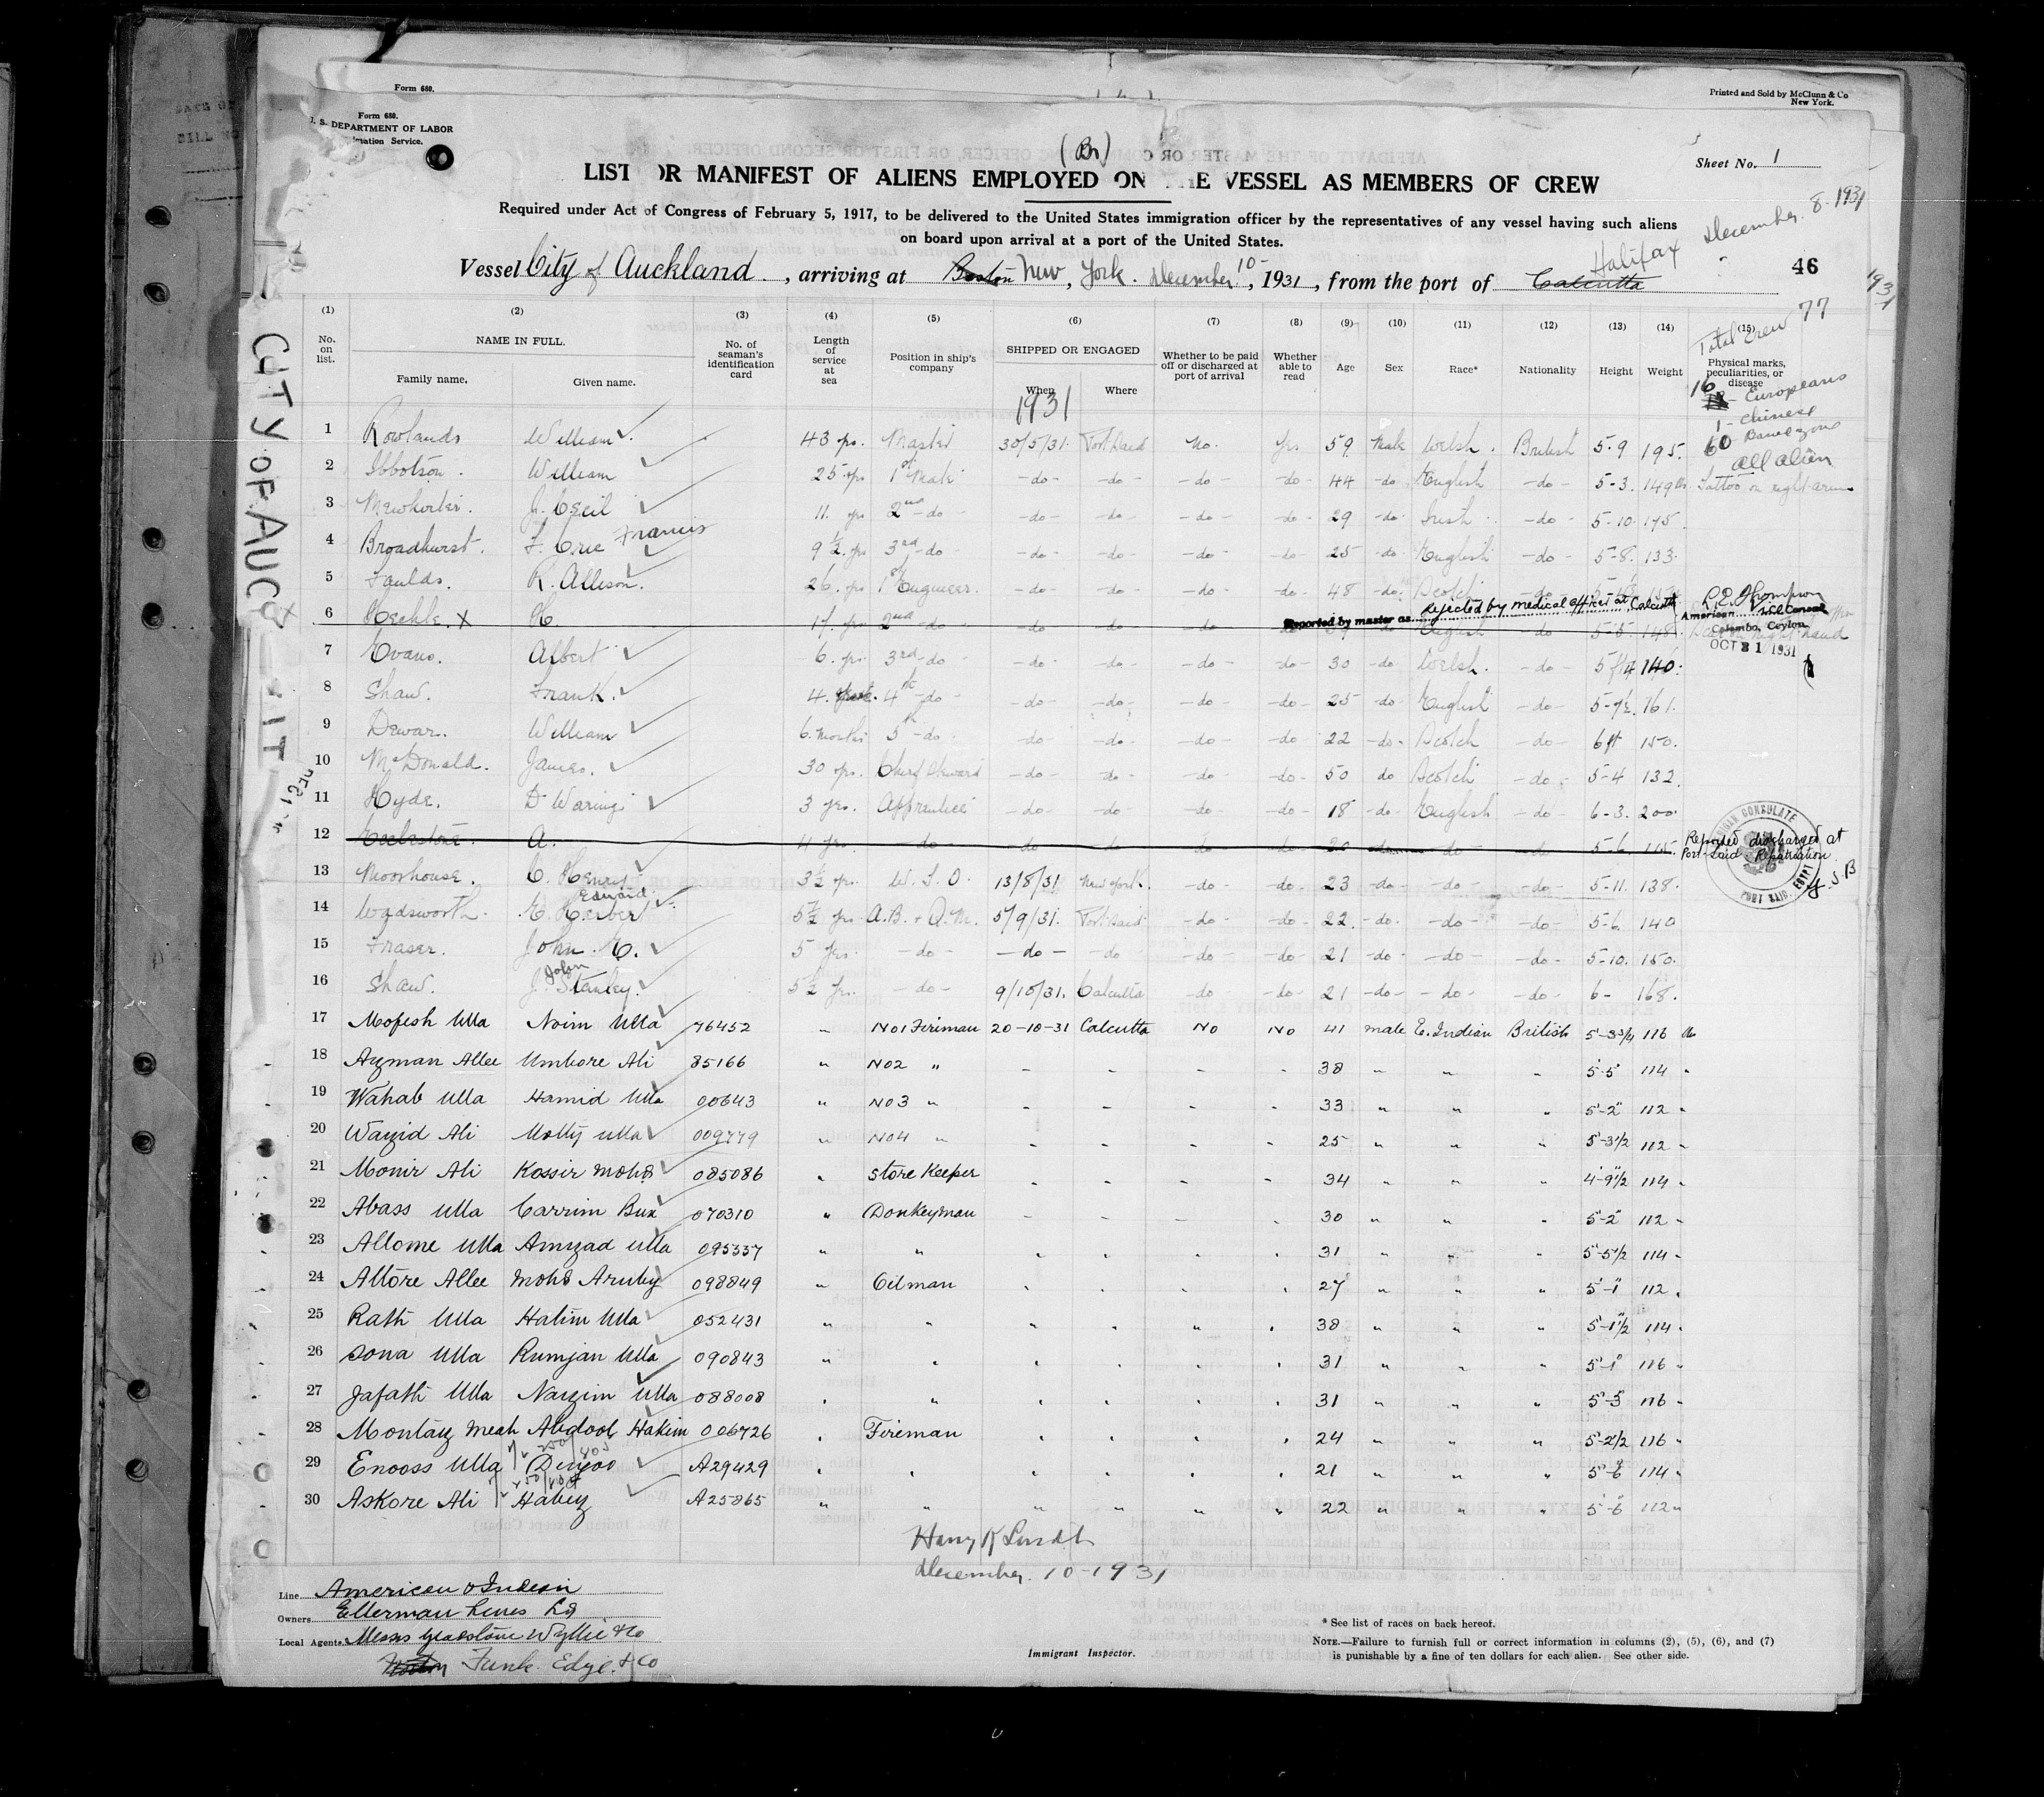 Form 680.
Printed and Sold by McClunn & Co
New York.
Form 680.
U. S. DEPARTMENT OF LABOR
Immigration Service.
(Br)
Sheet No. 1
LIST OR MANIFEST OF ALIENS EMPLOYED ON THE VESSEL AS MEMBERS OF CREW
Required under Act of Congress of February 5, 1917, to be delivered to the United States immigration officer by the representatives of any vessel having such aliens
on board upon arrival at a port of the United States.
December 8-1931
Halifax
Vessel City of Auckland, arriving at Boston New York. December 10-, 1931, from the port of Calcutta
46
1931
CITY OF AUC
(1) (2) (3) (4) (5) (6) (7) (8) (9) (10) (11) (12) (13) (14) (15)
No. on list. NAME IN FULL. Family name. Given name. No. of seaman's identification card Length of service at sea Position in ship's company SHIPPED OR ENGAGED When Where Whether to be paid off or discharged at port of arrival Whether able to read Age Sex Race* Nationality Height Weight Physical marks, peculiarities, or disease
Total Crew 77
16 - Europeans
1 - Chinese
60
all alien
1931
1 Rowlands William 43 yrs. Master 30/5/31 Port Said No. Yes 59 Male Welsh British 5-9 195
2 Ibbotson William 25 yrs 1st Mate -do- -do- -do- -do- 44 -do- English -do- 5-3 149 lbs Tattoo on right arm
3 J. Cecil 11 yrs 2nd -do- -do- -do- -do- -do- 29 -do- Irish -do- 5-10 175
4 Broadhurst F. Eric Francis 9½ yrs 3rd -do- -do- -do- -do- -do- 25 -do- English -do- 5-8 133
5 Faulds. R. Allison. 26 yrs 1st Engineer -do- -do- -do- -do- 48 -do- Scotch -do-
Reported by master as rejected by medical officer at Calcutta
R.E. Thompson
American Vice Consul
Colombo, Ceylon
OCT 31 1931
6 X 2nd -do- -do- -do- -do- English -do- 5-5 148 right hand
7 Evans. Albert 6 yrs 3rd -do- -do- -do- -do- -do- 30 -do- Welsh. -do- 140
8 Shaw. Frank. 4 4th -do- -do- -do- -do- -do- 25 -do- English -do- 5-7½ 161
9 Dewar. William 6 months 5th -do- -do- -do- -do- -do- 22 -do- Scotch -do- 6 ft 150
10 McDonald. James. 30 yrs. Chief Steward -do- -do- -do- -do- 50 do Scotch -do- 5-4 132
11 Hyde. D. Waring 3 yrs. Apprentice -do- -do- -do- -do- 18 -do- English -do- 6-3 200
12 Ecclestone. A. 4 yrs. -do- -do- -do- 20 -do- -do- -do- 5-6 145
Reported discharged at
Port-Said Repatriation
AMERICAN CONSULATE
PORT SAID, EGYPT
13 Moorhouse. C. Henry 3½ yrs. W. T. O. 13/8/31 New York. -do- -do- 23 -do- -do- -do- 5-11 138
14 Wadsworth. E. Herbert Edward 5½ yrs A.B. + Q.M. 5/9/31 Port Said -do- -do- 22 -do- -do- -do- 5-6 140
15 Fraser. John C. 5 yrs. -do- -do- -do- -do- -do- 21 -do- -do- -do- 5-10 150
16 Shaw. J. Stanley. John 5½ yrs. -do- 9/10/31. Calcutta -do- -do- 21 -do- -do- -do- 6- 168
17 Mofesh Ulla Noim Ulla 76452 " No1 Fireman 20-10-31 Calcutta No No 41 male E. Indian British 5'-3¾ 116 lb
18 Azman Allee Umbore Ali 85166 " No2 " 38 " " " 5'-5 114 "
19 Wahab Ulla Hamid Ulla 00643 " No3 " 33 " " " 5'-2" 112 "
20 Wazid Ali Molly Ulla 009779 " No4 " 25 " " " 5'-3½ 112 "
21 Monir Ali Kossir Mohd 085086 " Store Keeper 34 " " " 4'-9½ 114 "
22 Abass Ulla Carrim Bux 070310 " Donkeyman 30 " " " 5'-2" 112 "
23 Allome Ulla Amzad Ulla 095337 " " 31 " " " 5'-5½ 114 "
24 Attore Allee Mohd Aruby 098849 " Oilman 27 " " " 5'-1" 112 "
25 Rath Ulla Halim Ulla 052431 " " 38 " " " 5'-1½ 114 "
26 Sona Ulla Rumjan Ulla 090843 " " 31 " " " 5'-1" 116 "
27 Jafath Ulla Nazim Ulla 088008 " " 31 " " " 5'-3" 116 "
28 Montaz Meah Abdool Hakim 006726 " Fireman 24 " " " 5'-2½ 116 "
29 Enooss Ulla Dinjoo A29429 " " 21 " " " 5'-6" 114 "
30 Askore Ali Habiz A25865 " " 22 " " " 5'-6 112 "
December 10-1931
Line American & Indian
Owners Ellerman Lines Ld
Local Agents Messrs Gladstone Wyllie & Co
Funk. Edge. & Co
Immigrant Inspector.
* See list of races on back hereof.
NOTE.—Failure to furnish full or correct information in columns (2), (5), (6), and (7)
is punishable by a fine of ten dollars for each alien. See other side.